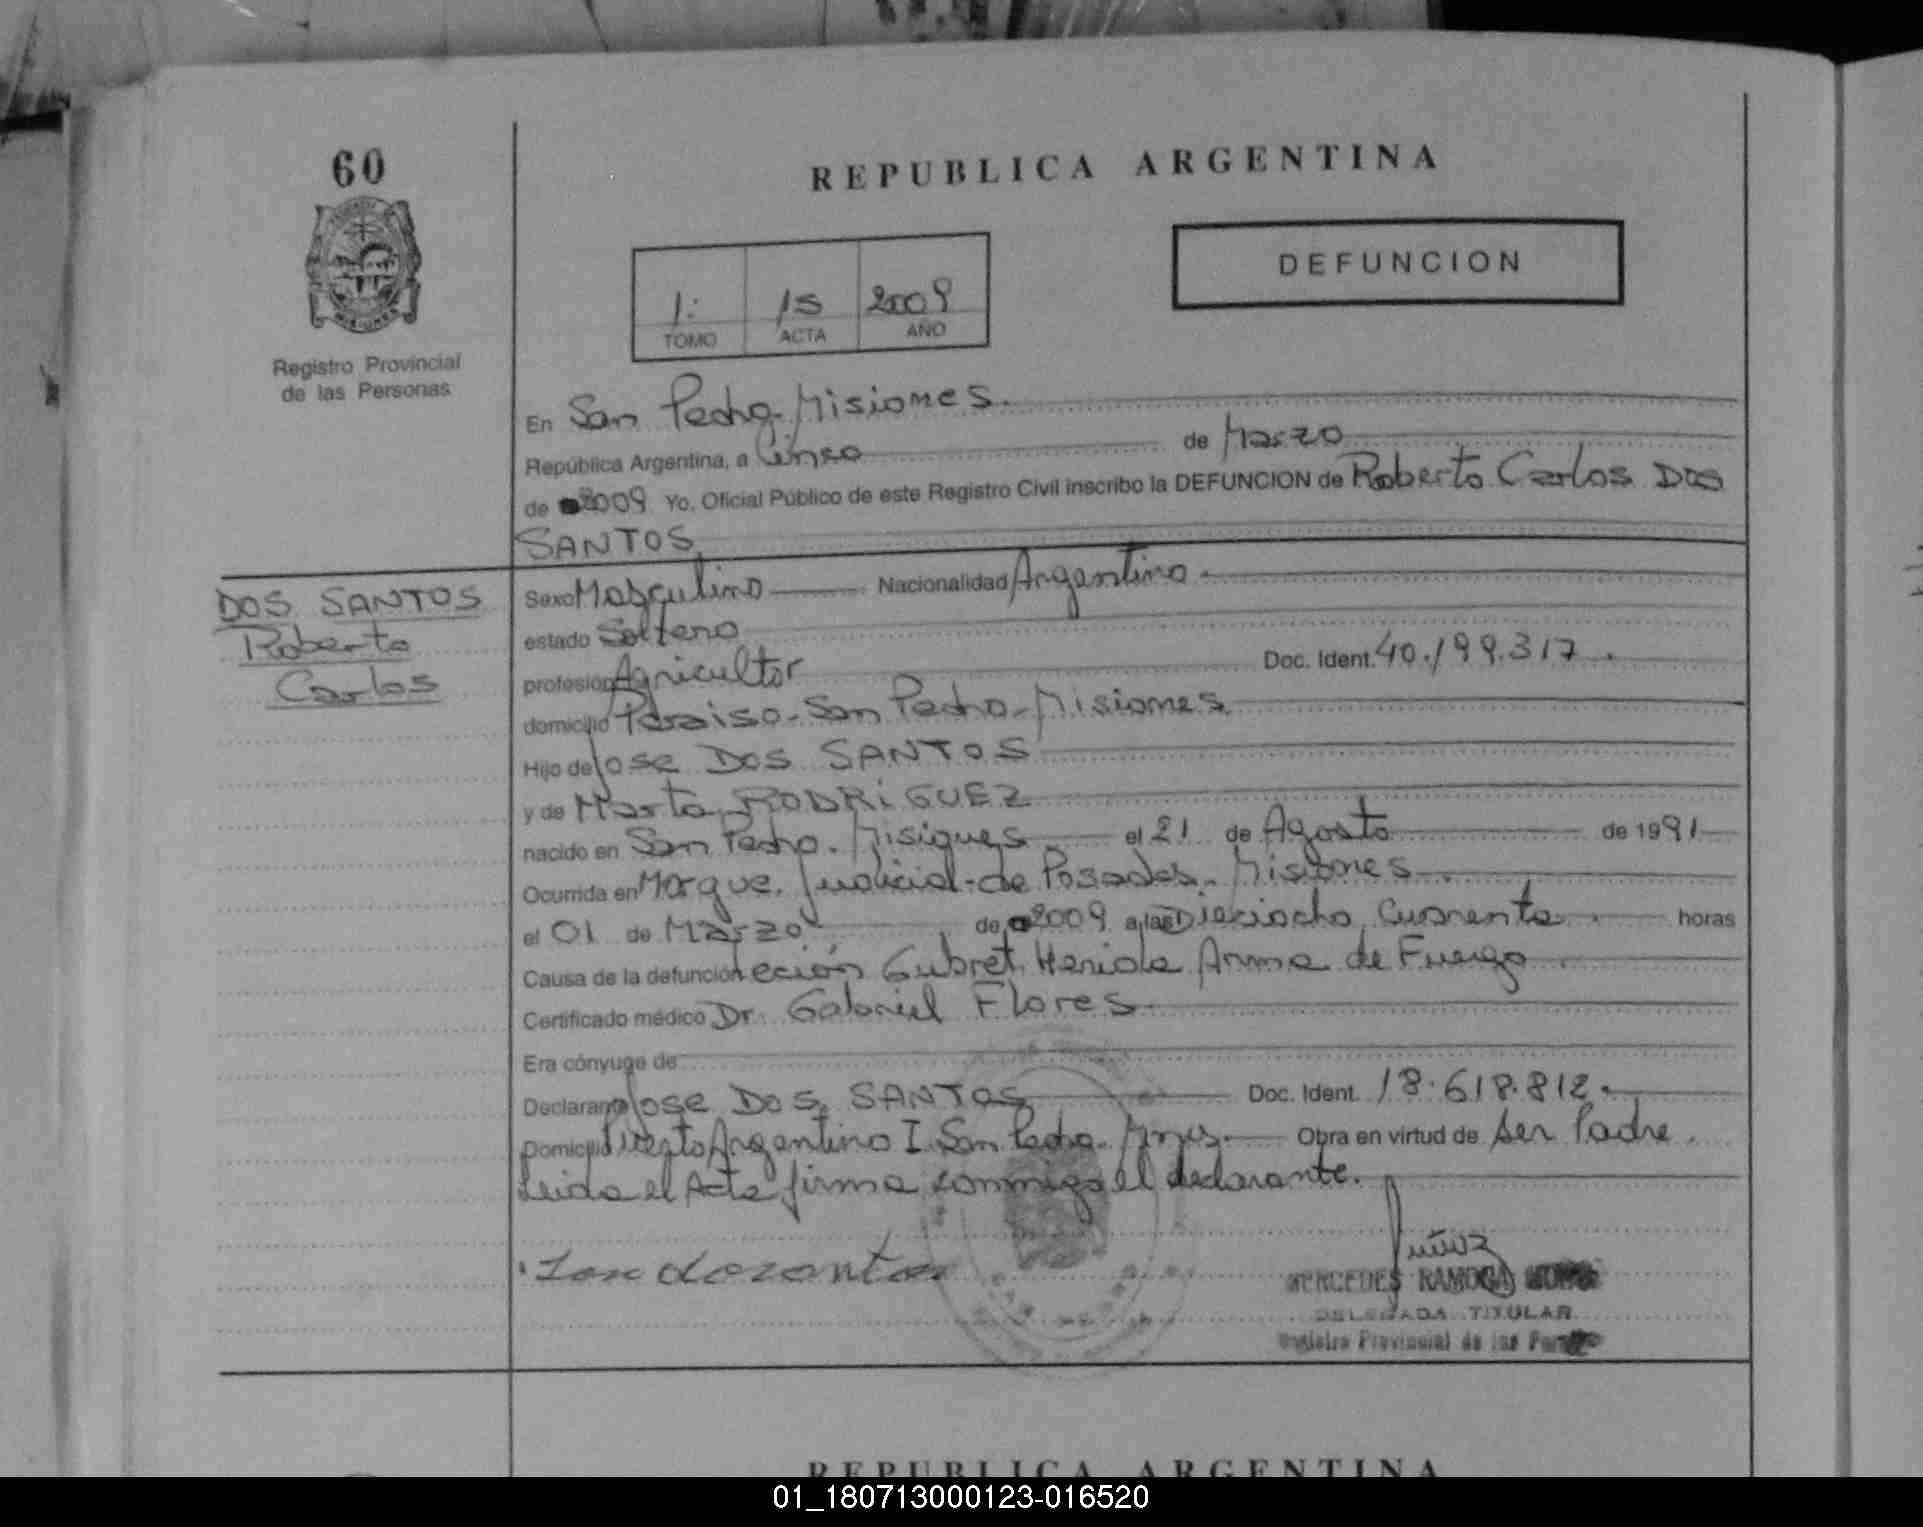 60
REPUBLICA ARGENTINA
DEFUNCION
1: 15 2009
TOMO ACTA AÑO
MISIONES
Registro Provincial
de las Personas
En San Pedro. Misiones.
República Argentina, a Cinco de Marzo
de 2009 Yo, Oficial Público de este Registro Civil inscribo la DEFUNCION de Roberto Carlos DOS
SANTOS
DOS SANTOS
Roberto
Carlos
Sexo Masculino Nacionalidad Argentina.
estado Soltero
profesion Agricultor Doc. Ident. 40.199.317.
domicilio Paraiso-San Pedro-Misiones
Hijo de Jose DOS SANTOS
y de Marta RODRIGUEZ
nacido en San Pedro. Misiones el 21 de Agosto de 1991
Ocurrida en Morgue. Judicial-de Posadas. Misiones
el 01 de Marzo de 2009 a las Dieciocho Cuarenta. horas
Causa de la defunción Leción Herida Arma de Fuego.
Certificado médico Dr. Gabriel Flores.
Era cónyuge de
Declarante Jose DOS SANTOS Doc. Ident. 18.618.812.
Domicilio Argentino I. San Pedro. Mnes. Obra en virtud de ser Padre.
Leida el Acta firma conmigo el declarante.
MERCEDES RAMONA
DELEGADA TITULAR
Registro Provincial de las
REPUBLICA ARGENTINA
01_180713000123-016520